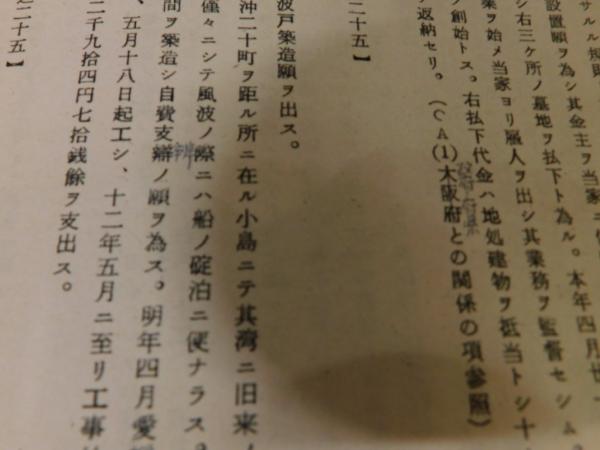 サルル規則
設置願ヲ為シ其金主ヲ当家ニ
シ右三ケ所ノ墓地ヲ払下ト為ル。本年四月廿一
業ヲ始メ当家ヨリ属人ヲ出シ其業務ヲ監督セシム
ノ創始トス。右払下代金ハ地処建物ヲ抵当トシ十
返納セリ。(CA(1)大阪府との関係の項参照)
政府府県
二十五】
波戸築造願ヲ出ス。
沖二十町ヲ距ル所ニ在ル小島ニテ其湾ニ旧来ノ
僅々ニシテ風波ノ際ニハ船ノ碇泊ニ便ナラス
間ヲ築造シ自費支辯ノ願ヲ為ス。明年四月愛
辨
、五月十八日起工シ、十二年五月ニ至リ工事
二千九拾四円七拾銭餘ヲ支出ス。
二十五】